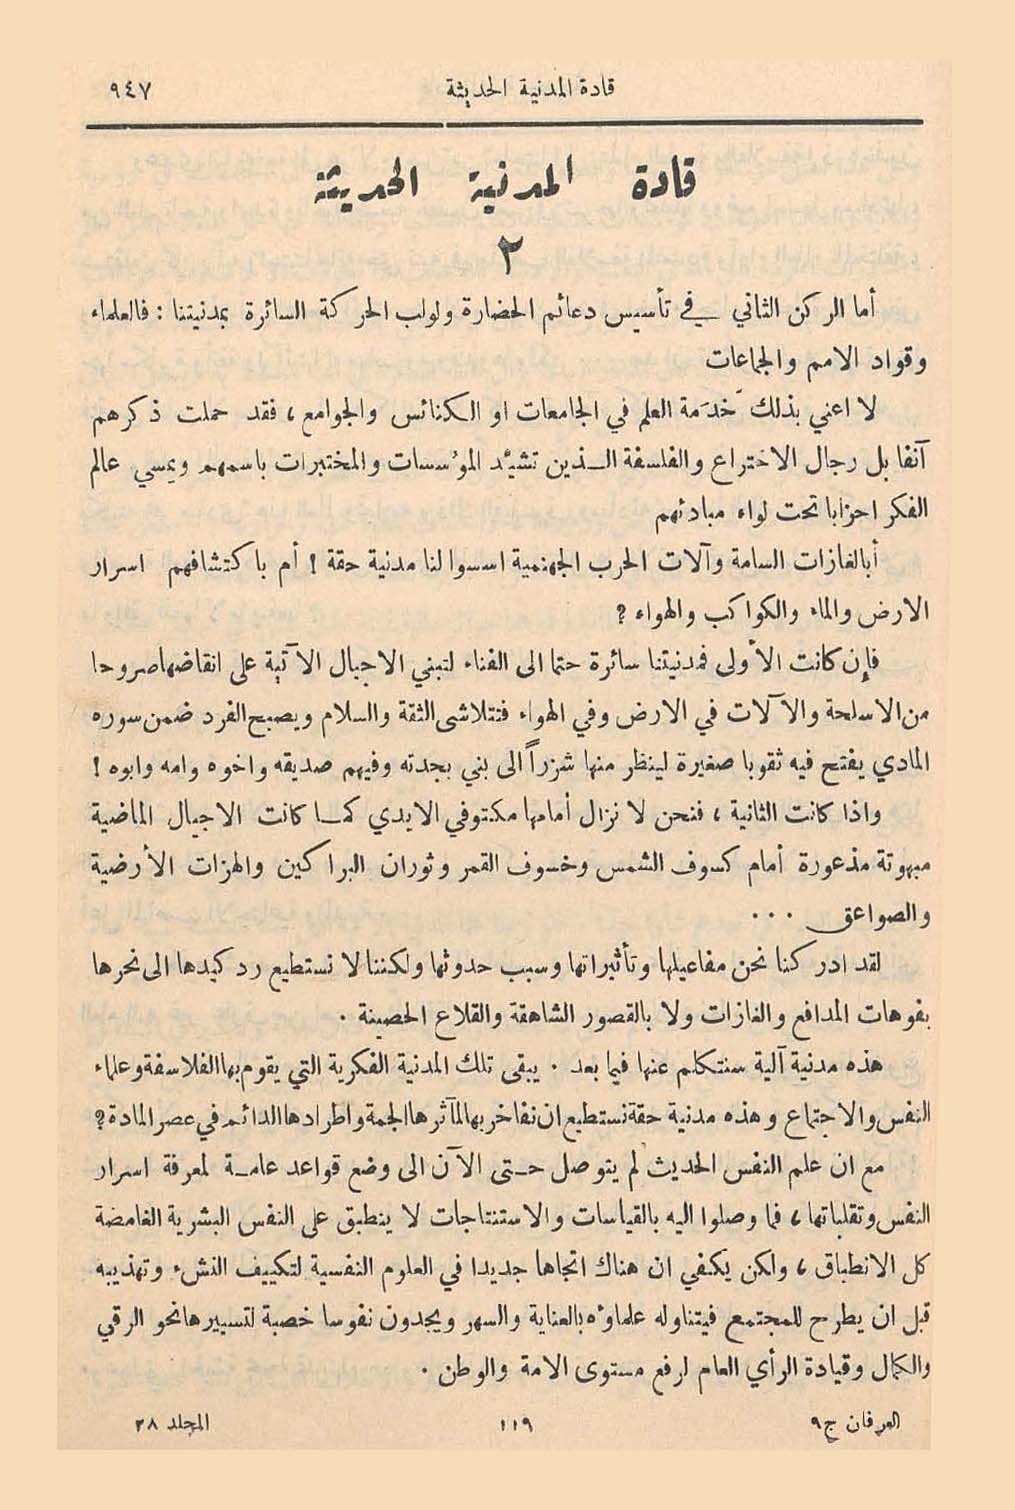 قادة المدنية الحديثة ٩٤٧
قادة المدنية الحديثة
٢
أما الركن الثاني في تأسيس دعائم الحضارة ولولب الحركة السائرة بمدنيتنا : فالعلماء
وقواد الامم والجماعات
لا اعني بذلك خدَمة العلم في الجامعات او الكنائس والجوامع ، فقد حملت ذكرهم
آنفا بل رجال الاختراع والفلسفة الذين تشيَّد المؤسسات والمختبرات باسمهم ويمسي عالم
الفكر احزابا تحت لواء مبادئهم
أبالغازات السامة وآلات الحرب الجهنمية اسسوا لنا مدنية حقة ! أم باكتشافهم اسرار
الارض والماء والكواكب والهواء ؟
فإن كانت الأولى فمدنيتنا سائرة حتما الى الفناء لتبني الاجيال الآتية على انقاضها صروحا
من الاسلحة والآلات في الارض وفي الهواء فتتلاشى الثقة والسلام ويصبح الفرد ضمن سوره
المادي يفتح فيه ثقوبا صغيرة لينظر منها شزراً الى بني بجدته وفيهم صديقه واخوه وامه وابوه !
واذا كانت الثانية ، فنحن لا نزال أمامها مكتوفي الايدي كما كانت الاجيال الماضية
مبهوتة مذعورة أمام كسوف الشمس وخسوف القمر وثوران البراكين والهزات الأرضية
والصواعق ...
لقد ادركنا نحن مفاعيلها وتأثيراتها وسبب حدوثها ولكننا لا نستطيع رد كيدها الى نحرها
بفوهات المدافع والغازات ولا بالقصور الشاهقة والقلاع الحصينة .
هذه مدنية آلية سنتكلم عنها فيما بعد . يبقى تلك المدنية الفكرية التي يقوم بها الفلاسفة وعلماء
النفس والاجتماع وهذه مدنية حقة نستطيع ان نفاخر بها لمآثرها الجمة واطرادها الدائم في عصر المادة ؟
مع ان علم النفس الحديث لم يتوصل حتى الآن الى وضع قواعد عامة لمعرفة اسرار
النفس وتقلباتها ، فما وصلوا اليه بالقياسات والاستنتاجات لا ينطبق على النفس البشرية الغامضة
كل الانطباق ، ولكن يكفي ان هناك اتجاها جديدا في العلوم النفسية لتكييف النشء وتهذيبه
قبل ان يطرح للمجتمع فيتناوله علماؤه بالعناية والسهر ويجدون نفوسا خصبة لتسييرها نحو الرقي
والكمال وقيادة الرأي العام لرفع مستوى الامة والوطن .
العرفان ج٩ ١١٩ المجلد ٣٨